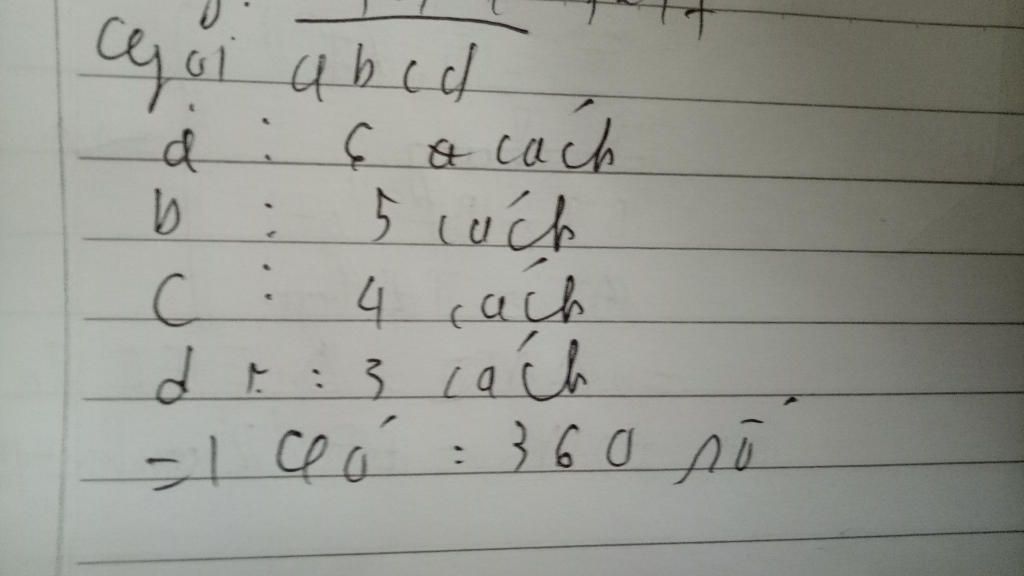 Gọi abcd
a : 6 cách
b : 5 cách
c : 4 cách
d : 3 cách
=) Có : 360 số